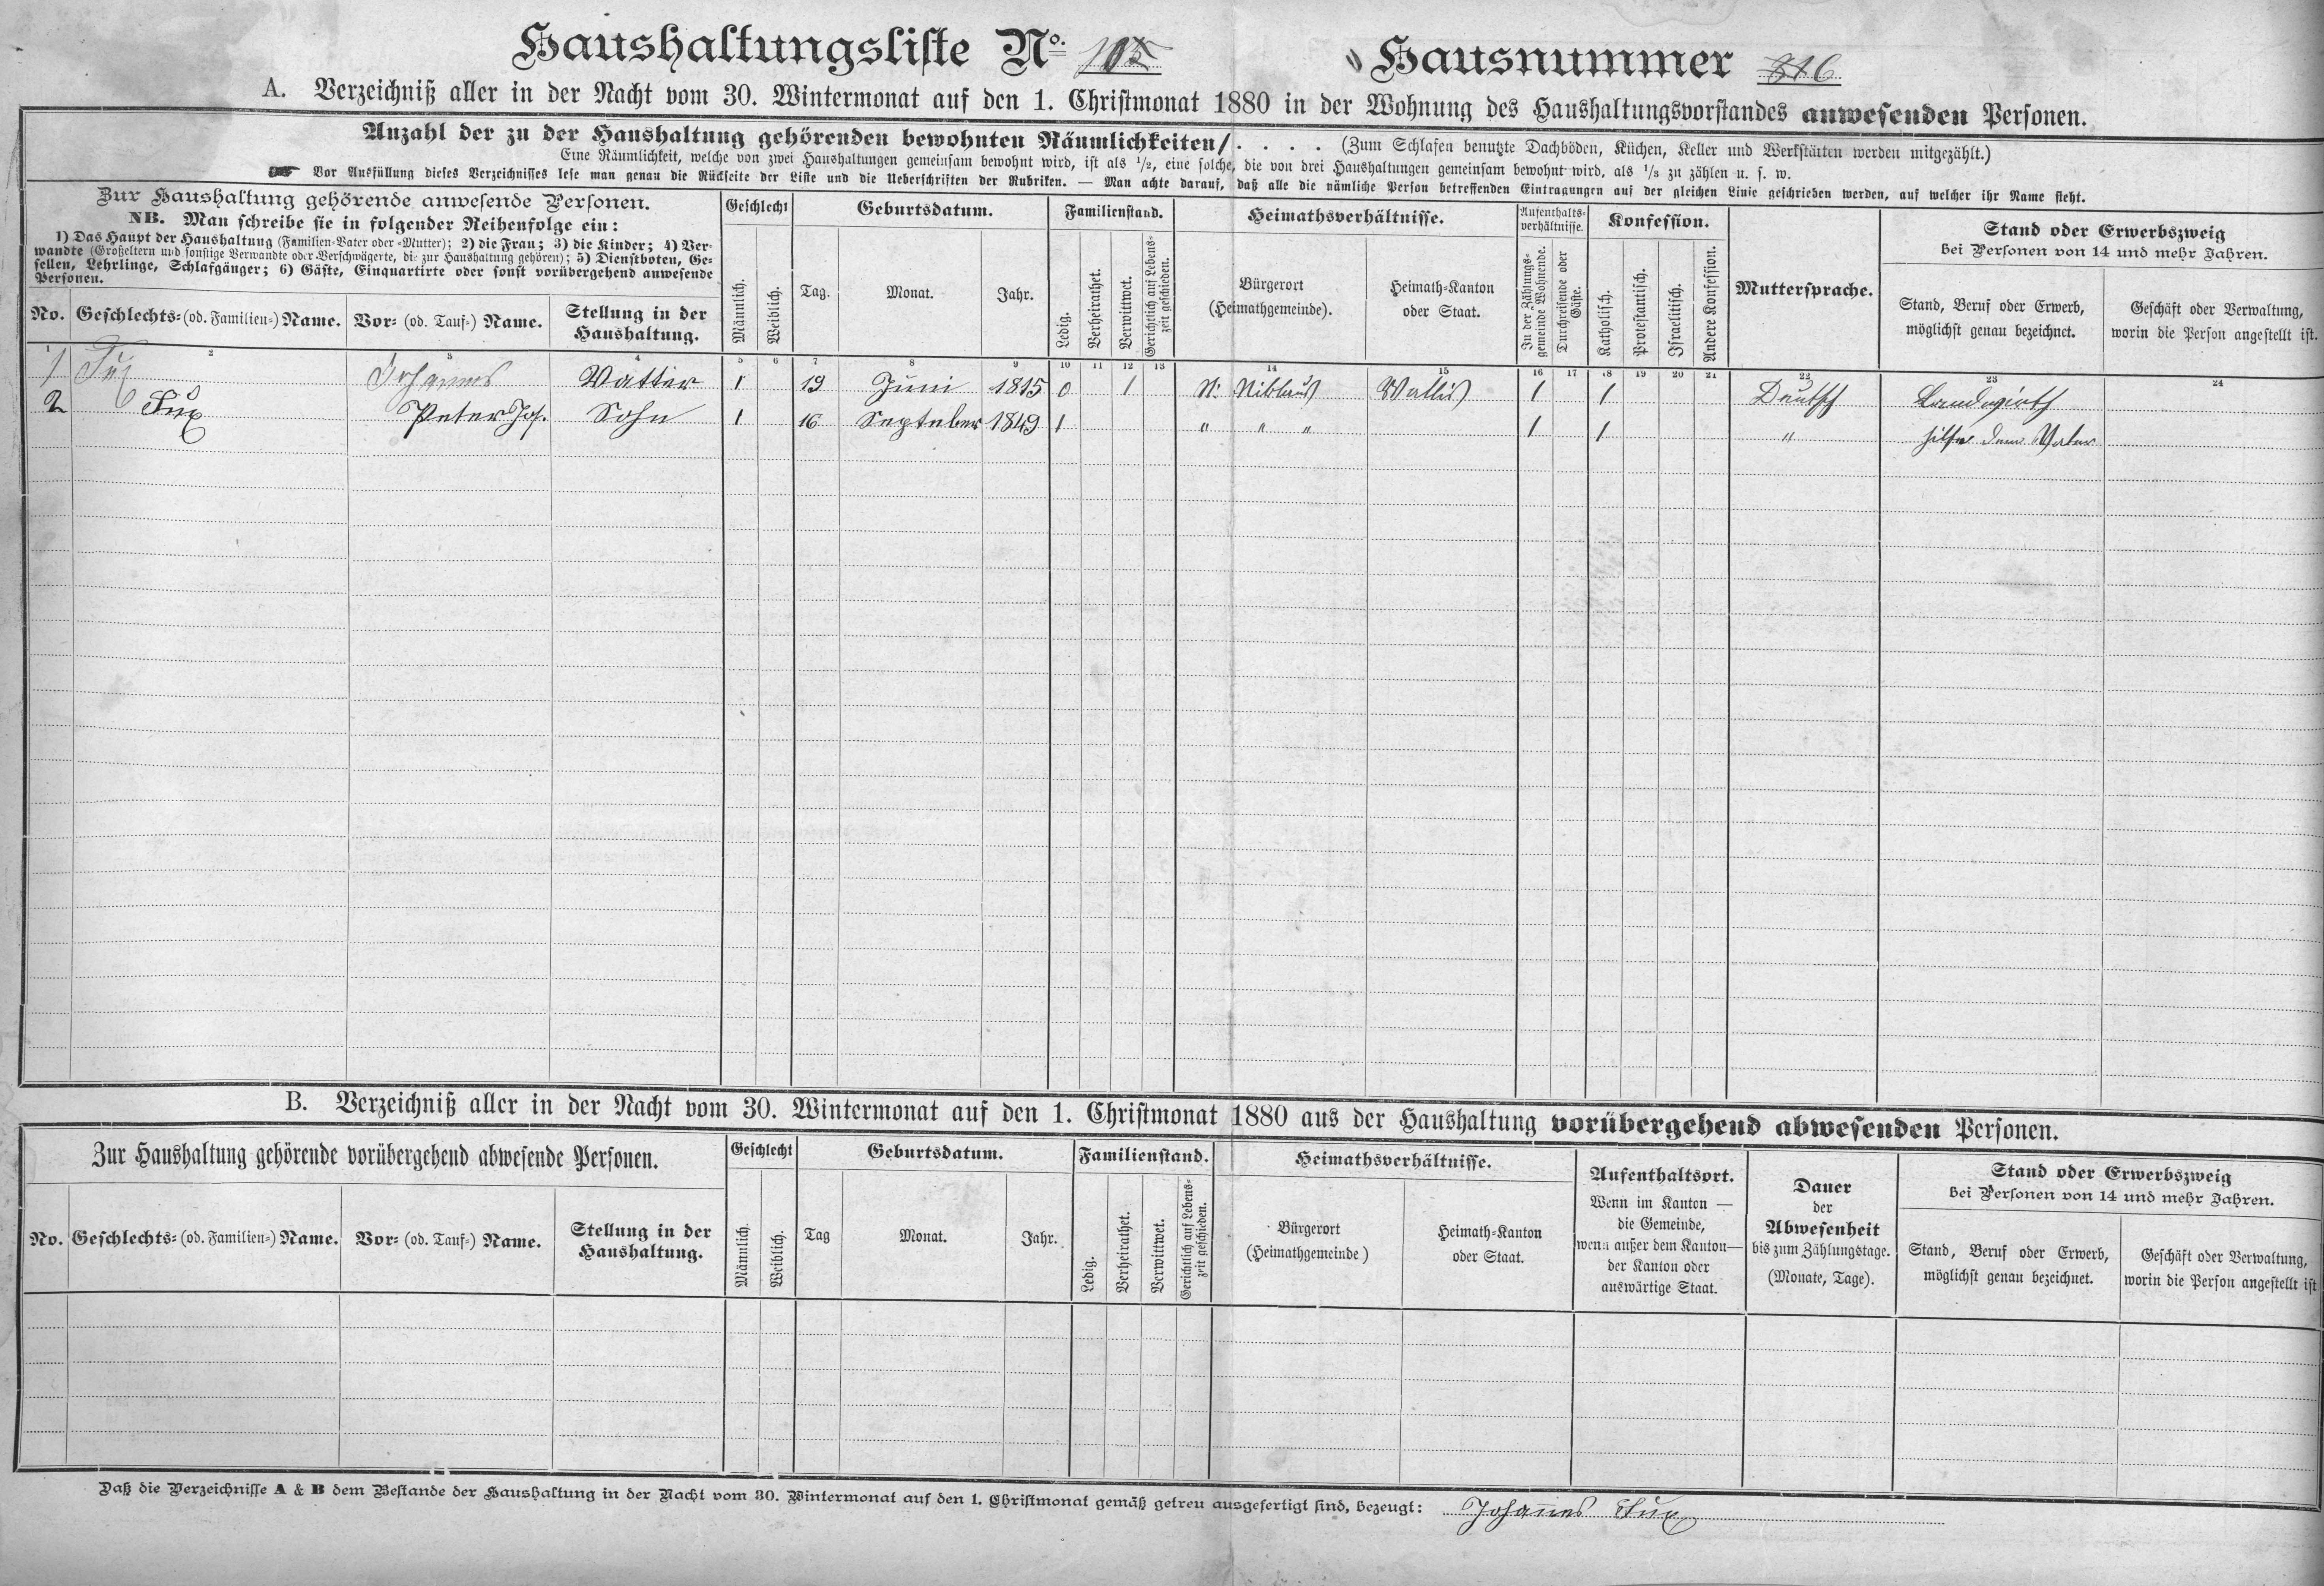 Haushaltungsliste No. 105 Hausnummer 816
A. Verzeichniß aller in der Nacht vom 30. Wintermonat auf den 1. Christmonat 1880 in der Wohnung des Haushaltungsvorstandes anwesenden Personen.
Anzahl der zu der Haushaltung gehörenden bewohnten Räumlichkeiten / . . . . (Zum Schlafen benutzte Dachböden, Küchen, Keller und Werkstätten werden mitgezählt.)
Eine Räumlichkeit, welche von zwei Haushaltungen gemeinsam bewohnt wird, ist als 1/2, eine solche, die von drei Haushaltungen gemeinsam bewohnt wird, als 1/3 zu zählen u. s. w.
Vor Ausfüllung dieses Verzeichnisses lese man genau die Rückseite der Liste und die Ueberschriften der Rubriken. — Man achte darauf, daß alle die nämliche Person betreffenden Eintragungen auf der gleichen Linie geschrieben werden, auf welcher ihr Name steht.
Zur Haushaltung gehörende anwesende Personen.
NB. Man schreibe sie in folgender Reihenfolge ein:
1) Das Haupt der Haushaltung (Familien-Vater oder -Mutter); 2) die Frau; 3) die Kinder; 4) Ver-
wandte (Großeltern und sonstige Verwandte oder Verschwägerte, die zur Haushaltung gehören); 5) Dienstboten, Ge-
sellen, Lehrlinge, Schlafgänger; 6) Gäste, Einquartirte oder sonst vorübergehend anwesende
Personen.
No. Geschlechts- (od. Familien-) Name. Vor- (od. Tauf-) Name. Stellung in der
Haushaltung.
Geschlecht
Männlich.
Weiblich.
Geburtsdatum.
Tag. Monat. Jahr.
Familienstand.
Ledig.
Verheirathet.
Verwittwet.
Gerichtlich auf Lebens-
zeit geschieden.
Heimathsverhältnisse.
Bürgerort
(Heimathgemeinde).
Heimath-Kanton
oder Staat.
Aufenthalts-
verhältnisse.
In der Zählungs-
gemeinde Wohnende.
Durchreisende oder
Gäste.
Konfession.
Katholisch.
Protestantisch.
Israelitisch.
Andere Konfession.
Muttersprache.
Stand oder Erwerbszweig
bei Personen von 14 und mehr Jahren.
Stand, Beruf oder Erwerb,
möglichst genau bezeichnet.
Geschäft oder Verwaltung,
worin die Person angestellt ist.
1 2 3 4 5 6 7 8 9 10 11 12 13 14 15 16 17 18 19 20 21 22 23 24
1 Fux Johannes Vatter 1 19 Juni 1815 0 1 St. Niklaus Wallis 1 1 Deutsch Landwirth
2 Fux Peter Jos. Sohn 1 16 September 1849 1 " " " 1 1 " hilft dem Vater
B. Verzeichniß aller in der Nacht vom 30. Wintermonat auf den 1. Christmonat 1880 aus der Haushaltung vorübergehend abwesenden Personen.
Zur Haushaltung gehörende vorübergehend abwesende Personen.
No. Geschlechts- (od. Familien-) Name. Vor- (od. Tauf-) Name. Stellung in der
Haushaltung.
Geschlecht
Männlich.
Weiblich.
Geburtsdatum.
Tag Monat. Jahr.
Familienstand.
Ledig.
Verheirathet.
Verwittwet.
Gerichtlich auf Lebens-
zeit geschieden.
Heimathsverhältnisse.
Bürgerort
(Heimathgemeinde)
Heimath-Kanton
oder Staat.
Aufenthaltsort.
Wenn im Kanton —
die Gemeinde,
wenn außer dem Kanton—
der Kanton oder
auswärtige Staat.
Dauer
der
Abwesenheit
bis zum Zählungstage.
(Monate, Tage).
Stand oder Erwerbszweig
bei Personen von 14 und mehr Jahren.
Stand, Beruf oder Erwerb,
möglichst genau bezeichnet.
Geschäft oder Verwaltung,
worin die Person angestellt ist
Daß die Verzeichnisse A & B dem Bestande der Haushaltung in der Nacht vom 30. Wintermonat auf den 1. Christmonat gemäß getreu ausgefertigt sind, bezeugt: Johanes Fux